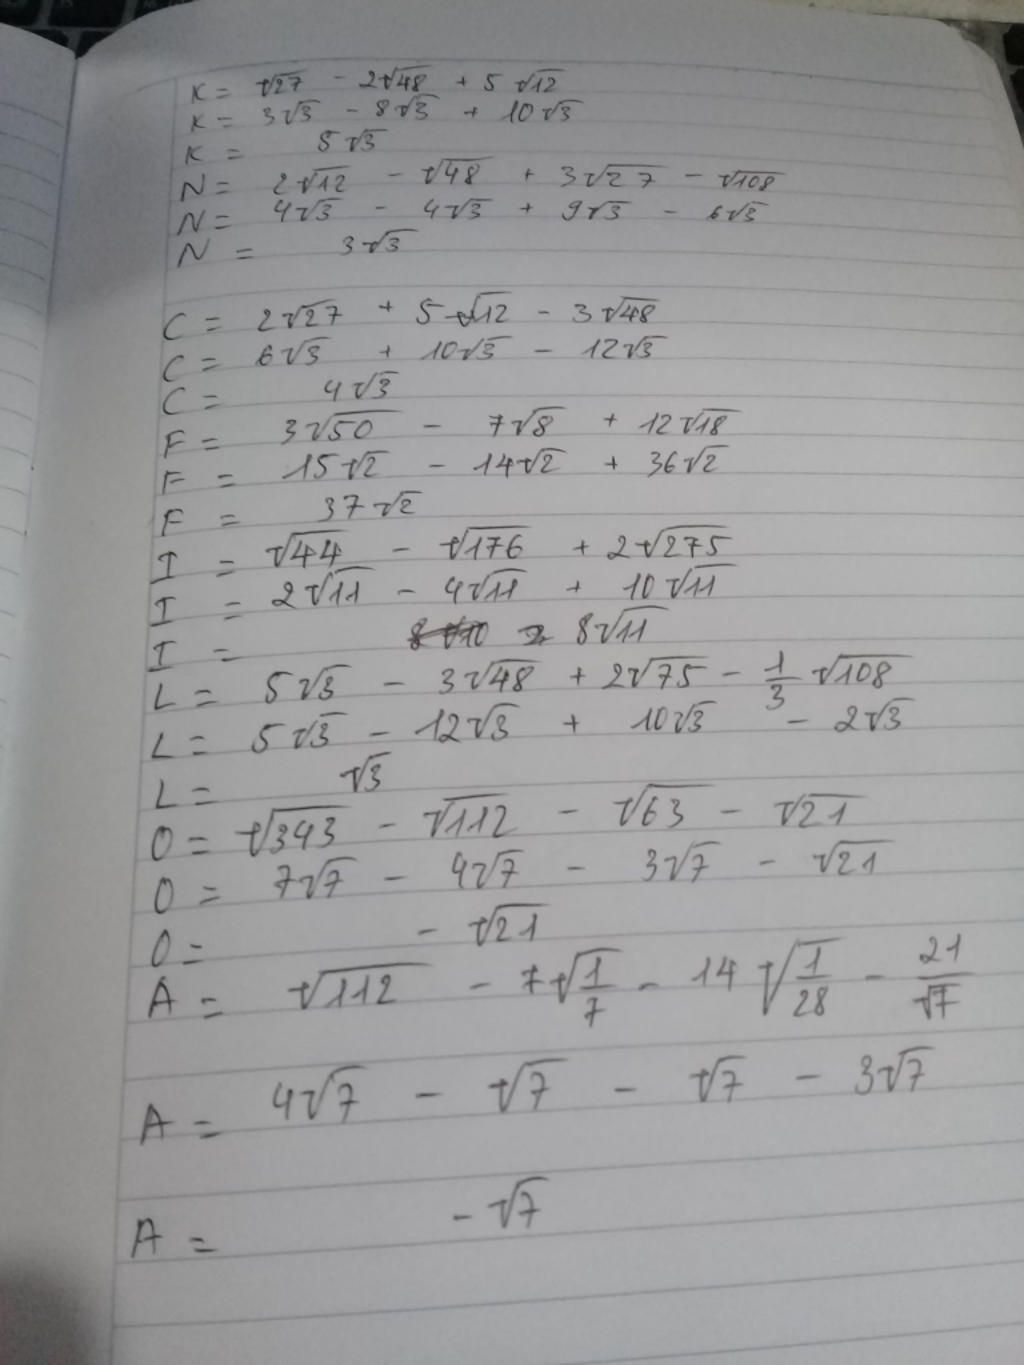 K = √27 - 2√48 + 5√12
K = 3√3 - 8√3 + 10√3
K = 5√3
N = 2√12 - √48 + 3√27 - √108
N = 4√3 - 4√3 + 9√3 - 6√3
N = 3√3
C = 2√27 + 5√12 - 3√48
C = 6√3 + 10√3 - 12√3
C = 4√3
F = 3√50 - 7√8 + 12√18
F = 15√2 - 14√2 + 36√2
F = 37√2
I = √44 - √176 + 2√275
I = 2√11 - 4√11 + 10√11
I = 8√11
L = 5√3 - 3√48 + 2√75 - 1/3 √108
L = 5√3 - 12√3 + 10√3 - 2√3
L = √3
O = √343 - √112 - √63 - √21
O = 7√7 - 4√7 - 3√7 - √21
O = - √21
A = √112 - 7√1/7 - 14√1/28 - 21/√7
A = 4√7 - √7 - √7 - 3√7
A = - √7